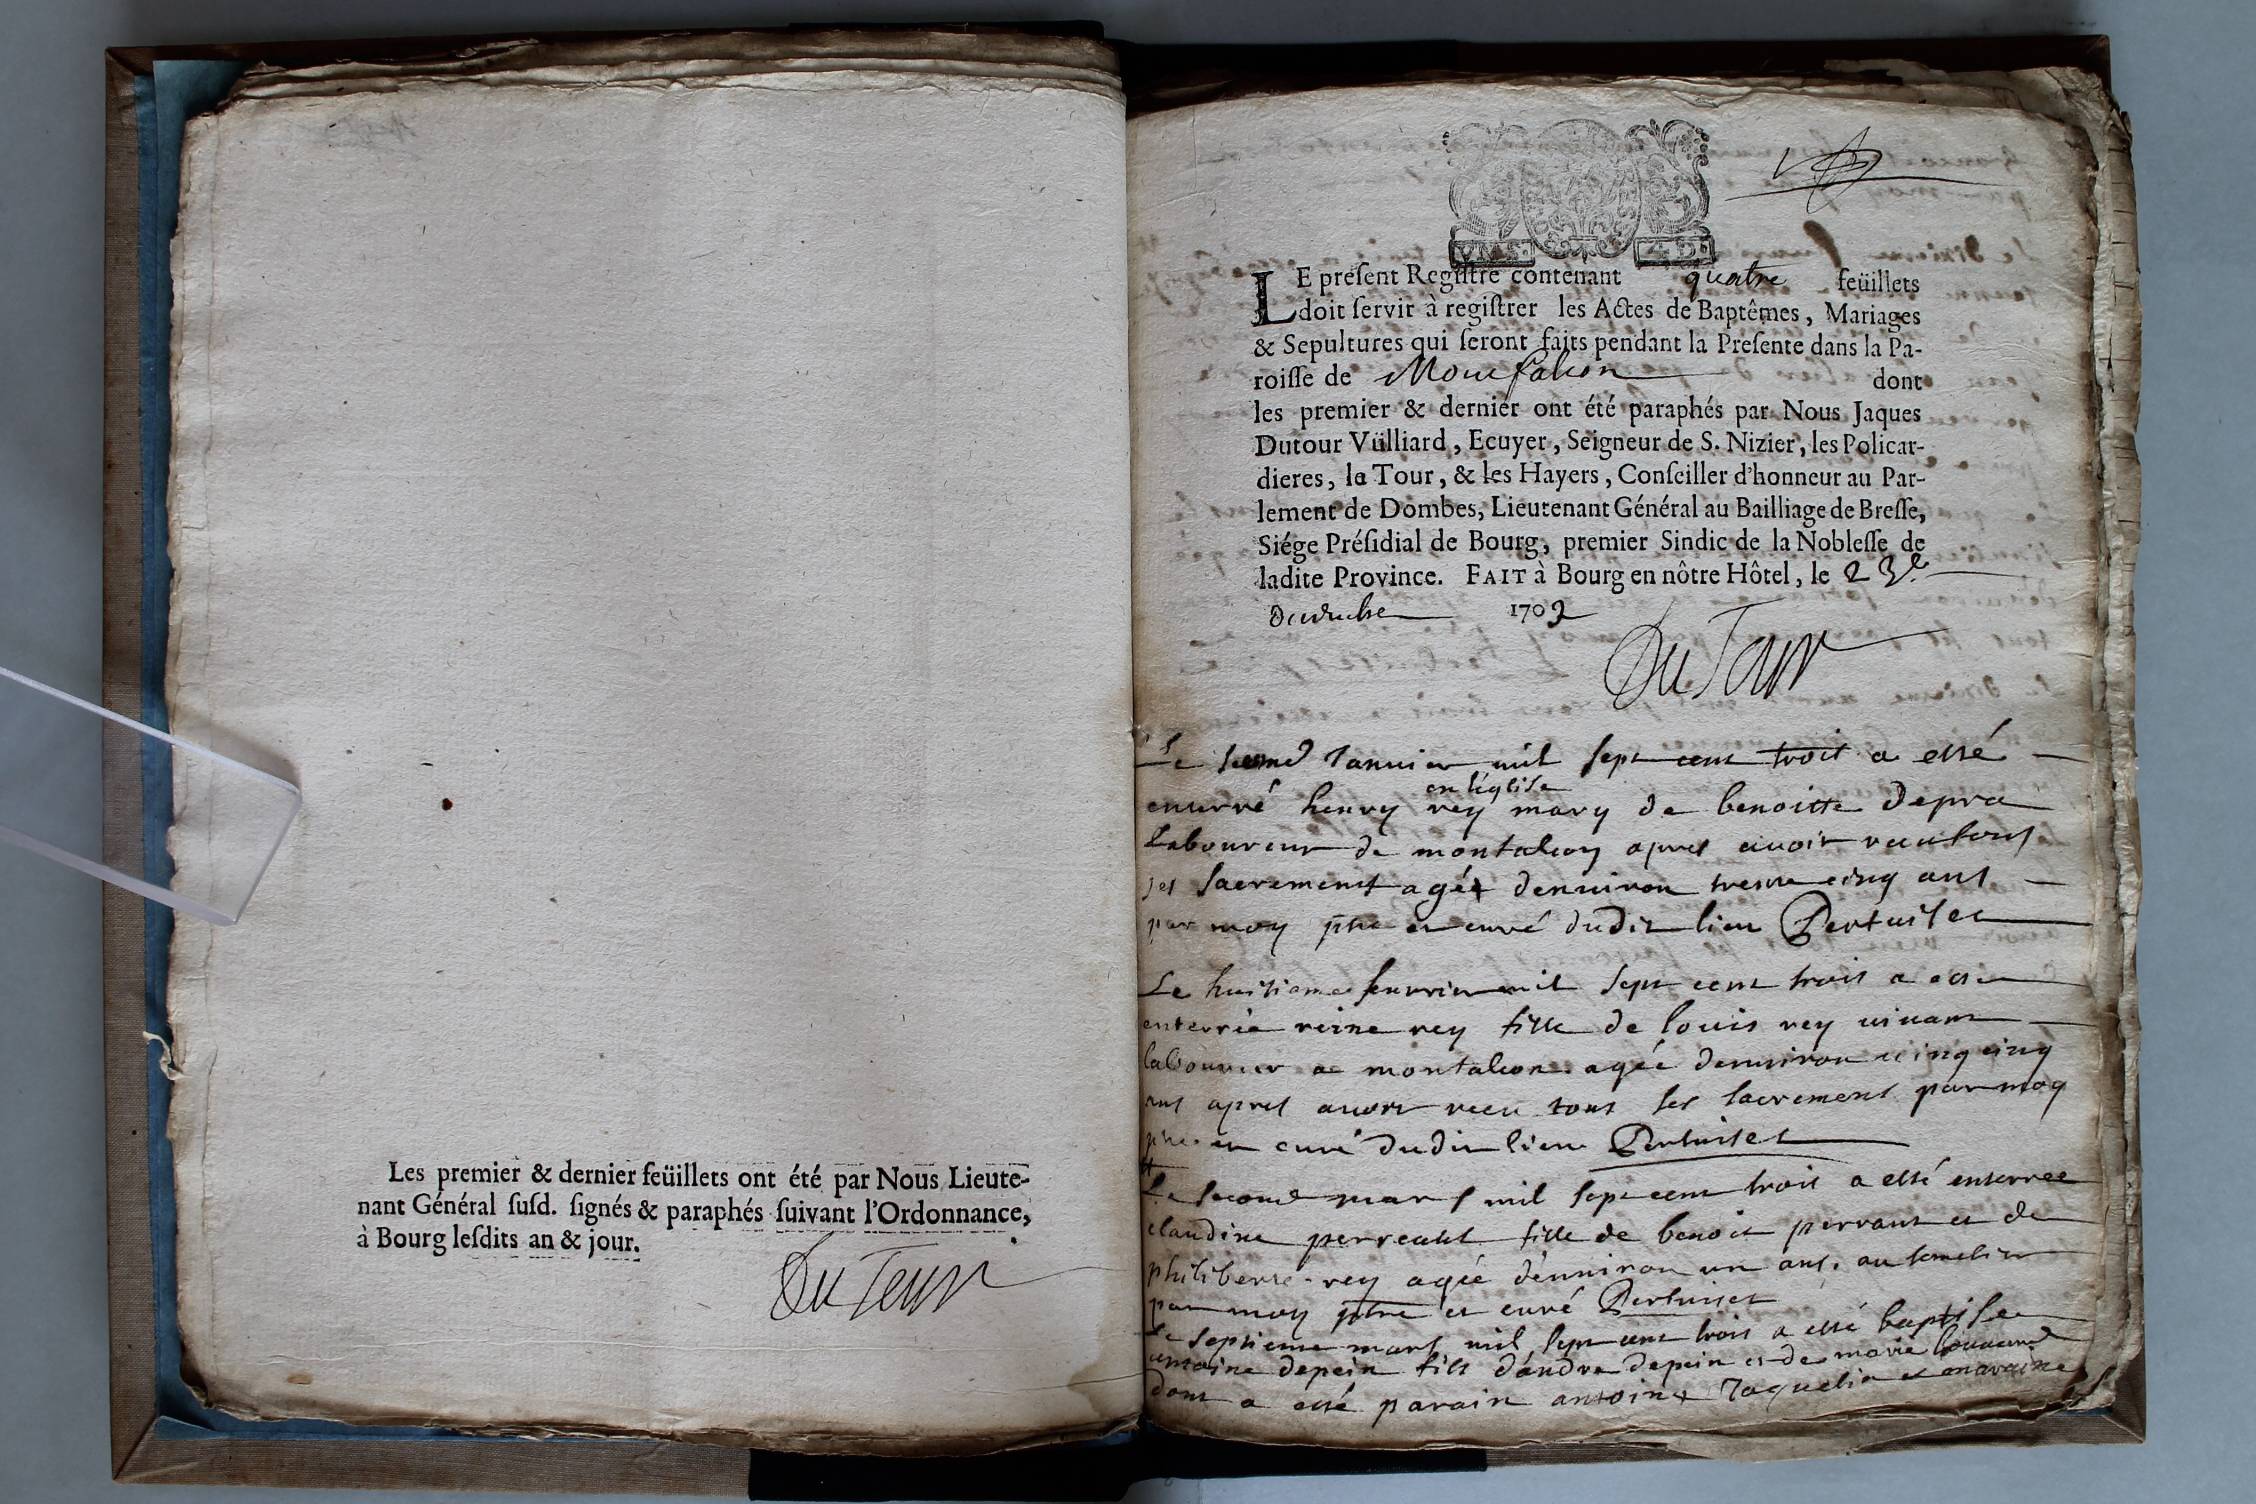 Les premier & dernier feüillets ont été par Nous Lieute-
nant Général ſuſd. ſignés & paraphés ſuivant l'Ordonnance,
à Bourg leſdits an & jour.
DuTour
LE preſent Regiſtre contenant quatre feüillets
doit ſervir à regiſtrer les Actes de Baptêmes, Mariages
& Sepultures qui ſeront faits pendant la Preſente dans la Pa-
roiſſe de dont
les premier & dernier ont été paraphés par Nous Jaques
Dutour Vülliard, Ecuyer, Seigneur de S. Nizier, les Policar-
dieres, la Tour, & les Hayers, Conſeiller d'honneur au Par-
lement de Dombes, Lieutenant Général au Bailliage de Breſſe,
Siége Préſidial de Bourg, premier Sindic de la Nobleſſe de
ladite Province. FAIT à Bourg en nôtre Hôtel, le 23e
1702
DuTour
Le second Januier mil sept cent troit a esté
en l'églize
enterré henry rey mary de benoitte depra
Laboureur de montalcon apres auoir
ses sacrement agée denuiron trente cinq ans
par moy ptre et curé dudit lieu Pertuiset
Le huitiame feuvrier mil sept cent trois a este
enterrée reine rey fille de louis rey uiuant
laboureur a montalcon agée denuiron uingt cinq
ans apres auoir receu tous ses sacrement par moy
ptre et curé dudit lieu Pertuiset
Le second mars mil sept cent trois a esté enterree
claudine perreaut fille de benoit perraut et de
philiberte rey agée denuiron un ans
par moy ptre et curé Pertuiset
Le septieme mars mil sept cent trois a esté baptise
antoine depein fils d'andre depein et de marie
dont a esté parain antoine Jaquelin et maraine